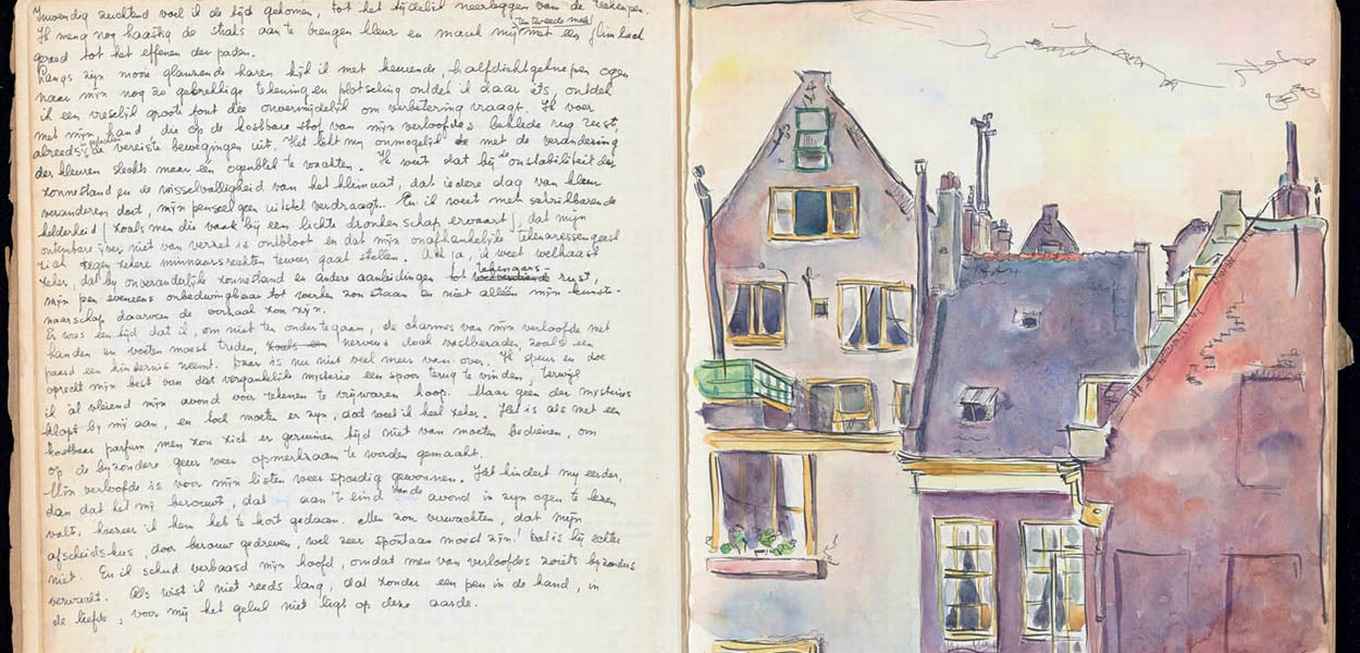 Inwendig zuchtend voel ik de tijd gekomen, tot het tijdelijk neerleggen van de tekenpen.
Ik meng nog haastig de straks aan te brengen kleur en maak mij ten tweede maal met een glimlach
gereed tot het effenen der paden.
Langs zijn mooie glanzende haren kijk ik met keurende, halfdichtgeknepen ogen
naar mijn nog zo gebrekkige tekening en plotseling ontdek ik daar iets, ontdek
ik een vreselijk grote fout die onvermijdelijk om verbetering vraagt. Ik voer
met mijn hand, die op de kostbare stof van mijn verloofde's beklede rug rust,
alreeds de vereiste bewegingen uit. Het lijkt mij onmogelijk met de verandering
der kleuren slechts maar een ogenblik te wachten. Ik weet dat bij de onstabiliteit der
zonnestand en de wisselvalligheid van het klimaat, dat iedere dag van kleur
veranderen doet, mijn penseel geen uitstel verdraagt. En ik weet met satrilbarende
helderheid (zoals men die vaak bij een lichte dronkenschap ervaart), dat mijn
ontembare ijver niet van verzet is ontbloot en dat mijn onafhankelijke tekenaressengeest
zich tegen zekere minnaarsrechten teweer gaat stellen. Ach ja, ik weet welhaast
zeker, dat bij onveranderlijk zonnestand en andere aanleidingen tot tekengans- rust,
mijn pen eveneens onbedwingbaar tot werken zou staan en niet alléén mijn kunste-
naarschap daarvan de oorzaak zou zijn.
Er was een tijd dat ik, om niet ten onder te gaan, de charmes van mijn verloofde met
handen en voeten moest treden, zoals een nerveus doch welberaden, zoals een
paard een hindernis neemt. Daar is nu niet veel meer van over. Ik speur en doe
oprecht mijn best van dat vergankelijke mysterie een spoor terug te vinden, terwijl
ik al vleiend mijn avond voor tekenen te vrijwaren hoop. Maar geen der mysteries
klopt bij mij aan, en toch moeten er zijn, dat weet ik heel zeker. Het is als met een
kostbaar parfum, men zou zich er geruimen tijd niet van moeten bedienen, om
op de bijzondere geur weer opmerkzaam te worden gemaakt.
Mijn verloofde is voor mijn listen weer spoedig gewonnen. Het hindert mij eerder,
dan dat het mij berouwt, dat aan 't eind van de avond in zijn ogen te lezen
valt, hoezeer ik hem heb te kort gedaan. Men zou verwachten, dat mijn
afscheidskus, door berouw gedreven, wel zeer spontaan moest zijn! Dat is hij echter
niet. En ik schud verbaasd mijn hoofd, omdat men van verloofdes zoiets bijzonders
verwacht. Als wist ik niet reeds lang, dat zonder een pen in de hand, in
de liefde, voor mij het geluk niet ligt op deze aarde.